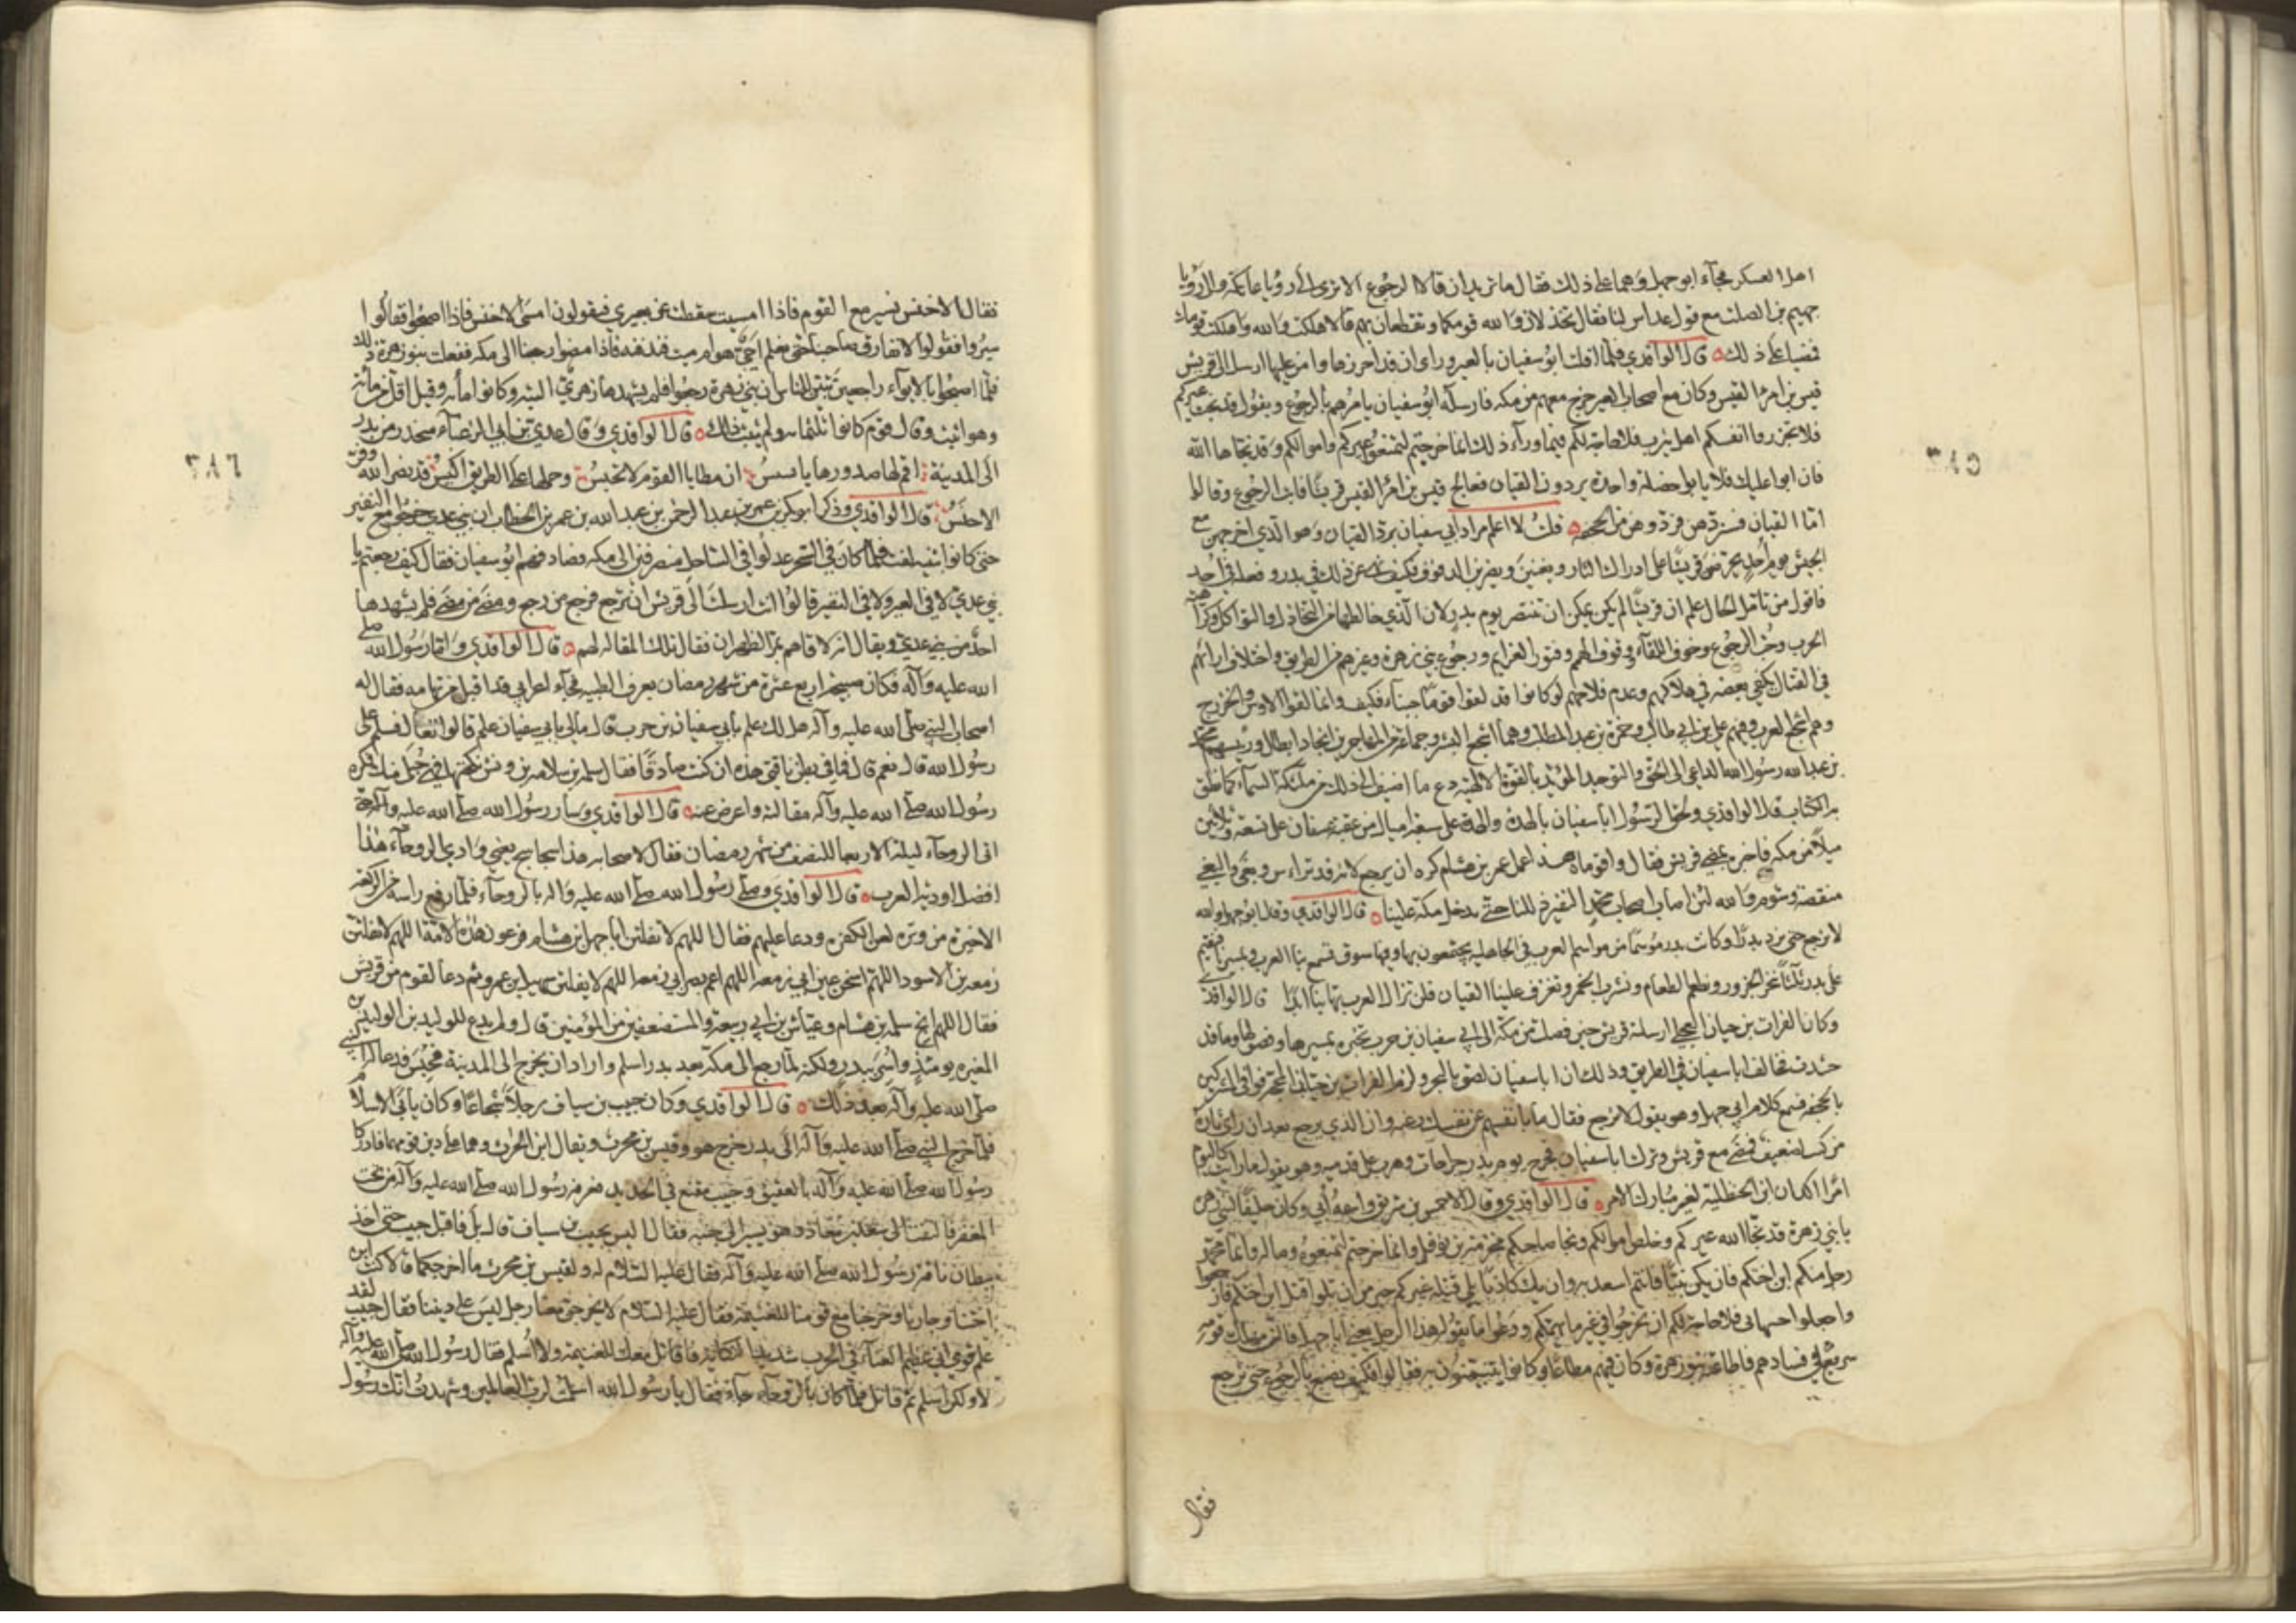 اهل العسكر فجآء ابو جهل وهما على ذلك فقال ما تريدان قالا الرجوع الا ترى الى رؤيا عاتكة والى رؤيا
جهيم بن الصلت مع قول عداس لنا فقال تخذلان والله قومكما وتقطعان بهم قالا هلكت والله واهلكت قومك
فمضيا على ذلك قال الواقدي فلما افلت ابو سفيان بالعير وراى ان قد احرزها وامن عليها ارسل الى قريش
قيس بن امرئ القيس وكان مع اصحاب العير خرج معهم من مكه فارسله ابو سفيان يامرهم بالرجوع ويقول قد نجت عيركم
فلا تجزروا انفسكم اهل يثرب فلا حاجة لكم فيما ورآء ذلك انما خرجتم لتمنعوا عيركم واموالكم وقد نجاها الله
فان ابوا عليك فلا يابوا خصلة واحدة يردون القيان فعالج قيس بن امرئ القيس قريشا فابت الرجوع وقالوا
اما القيان فسنردهن فردوهن من الجحفه قلت لا اعلم مراد ابي سفيان برد القيان وهو الذي اخرجهن مع
الجيش يوم احد يحرضن قريشا على ادراك الثار ويغنين ويضربن الدفوف فكيف نهى عن ذلك في بدر وفعله في احد
فاقول من تأمل الحال علم ان قريشا لم يكن يمكن ان تنتصر يوم بدر لان الذي خالطها من التخاذل والتواكل وكراهية
الحرب وحب الرجوع وخوف اللقآء وفتور الهمم وفتور العزايم ورجوع بني زهرة وغيرهم من الطريق واختلاف ارائهم
في القتال يكفي بعضه في هلاكهم وعدم فلاحهم لو كانوا قد لقوا قوما جبناء فكيف وانما لقوا الاوس والخزرج
وهم اشجع العرب وفيهم علي بن ابي طالب وحمزة بن عبد المطلب وهما اشجع البشر وجماعة من المهاجرين انجاد ابطال ورئيسهم محمد
بن عبد الله رسول الله الداعي الى الحق والتوحيد المؤيد بالقوة الالهية دع ما اضيف الى ذلك من ملئكة السمآء كما نطق
به الكتاب قال الواقدي ولحق الرسول ابا سفيان بالهدة والهدة على سبعة اميال من عقبة عسفان على تسعة وثلاثين
ميلا من مكه فاخبره بمضي قريش فقال واقوماه هذا عمل عمرو بن هشام كره ان يرجع لانه قد تراءس وبغى والبغي
منقصة وشوم والله لئن اصاب اصحاب محمد النفير ذللنا حتى يدخل مكة علينا قال الواقدي وقال ابو جهل والله
لا نرجع حتى نرد بدرا وكانت بدر موسما من مواسم العرب في الجاهليه يجتمعون بها وفيها سوق تسمع بنا العرب وبمسيرنا فنقيم
على بدر ثلثا ننحر الجزور ونطعم الطعام ونشرب الخمر وتعزف علينا القيان فلن تزال العرب تهابنا ابدا قال الواقدي
وكان الفرات بن حيان العجلي ارسلته قريش حين فصلت من مكة الى ابي سفيان بن حرب يخبره بمسيرها وفصولها وما قد
حشدت فخالف ابا سفيان في الطريق وذلك ان ابا سفيان لصق بالبحر ولزم الفرات بن حيان المحجة فوافى المشركين
بالجحفه فسمع كلام ابي جهل وهو يقول لا نرجع فقال ما بانفسهم عن نفسك رغبه وان الذي يرجع بعد ان راى ثاره
من كثب لضعيف فمضى مع قريش وترك ابا سفيان فجرح يوم بدر جراحات وهرب على قدميه وهو يقول ما رايت كاليوم
امرا انكد ان ابن الحنظلية لغير مبارك الامر قال الواقدي وقال الاخنس بن شريق واسمه ابي وكان حليفا لبني زهرة
يا بني زهرة قد نجا الله عيركم وخلص اموالكم ونجا صاحبكم مخرمة بن نوفل وانما خرجتم لتمنعوه وماله وانما محمد
رجل منكم ابن اختكم فان يكن نبيا فانتم اسعد به وان يك كاذبا يلي قتله غيركم خير من ان تلوا قتل ابن اختكم فارجعوا
واجعلوا جبنها بي فلا حاجة لكم ان تخرجوا في غير ما يهمكم ودعوا ما يقوله هذا الرجل يعني ابا جهل فانه مهلك قومه
سريع في فسادهم فاطاعته بنو زهرة وكان فيهم مطاعا وكانوا يتيمنون به فقالوا فكيف نصنع بالرجوع حتى نرجع
فقال
٣٨٥
فقال الاخنس نسير مع القوم فاذا امسيت سقطت عن بعيري فيقولون امسى الاخنس فاذا اصبحوا فقالوا
سيروا فقولوا لا نفارق صاحبنا حتى نعلم احي هو ام ميت فندفنه فاذا مضوا رجعنا الى مكه ففعلت بنو زهرة ذلك
فلما اصبحوا بالابوآء راجعين تبين للناس ان بني زهرة رجعوا فلم يشهدها زهري البتة وكانوا مائه وقيل اقل من مائه
وهو اثبت وقال قوم كانوا ثلثمائه ولم يثبت ذلك قال الواقدي وقال عدي بن ابي الزغبآء منحدره من بدر
الى المدينة اقم لها صدورها يا بسبس ان مطايا القوم لا تحبس وحملها على الطريق اكيس قد نصر الله وفر
الاخنس قال الواقدي وذكر ابو بكر بن عمر بن عبد الرحمن بن عبد الله بن عمر بن الخطاب ان بني عدي خرجوا مع النفير
حتى كانوا بثنية لفت فلما كان في السحر عدلوا في الساحل منصرفين الى مكه فصادفهم ابو سفيان فقال كيف رجعتم يا
بني عدي لا في العير ولا في النفير قالوا انت ارسلت الى قريش ان ترجع فرجع من رجع ومضى من مضى فلم يشهدها
احد من بني عدي ويقال انه لاقاهم بمر الظهران فقال تلك المقاله لهم قال الواقدي واما رسول الله صلى
الله عليه وآله فكان صبيحة اربع عشرة من شهر رمضان بعرق الظبيه فجآء اعرابي قد اقبل من تهامه فقال له
اصحاب النبي صلى الله عليه وآله هل لك علم بابي سفيان بن حرب قال مالي بابي سفيان علم قالوا تعال فسلم على
رسول الله قال نعم قال فما في بطن ناقتي هذه ان كنت صادقا فقال سلمه بن سلامه بن وقش نكحتها فهي حبلى منك فكره
رسول الله صلى الله عليه وآله مقالته واعرض عنه قال الواقدي وسار رسول الله صلى الله عليه وآله حتى
اتى الروحآء ليلة الاربعا للنصف من شهر رمضان فقال لاصحابه هذا سجاسج يعني وادي الروحآء هذا
افضل اودية العرب قال الواقدي وصلى رسول الله صلى الله عليه واله بالروحآء فلما رفع راسه من الركعة
الاخيره من وتره لعن الكفره ودعا عليهم فقال اللهم لا تفلتن ابا جهل بن هشام فرعون هذه الامة اللهم لا تفلتن
زمعه بن الاسود اللهم اسخن عين ابي زمعه اللهم اعم بصر ابي زمعه اللهم لا تفلتن سهيل بن عمرو ثم دعا لقوم من قريش
فقال اللهم انج سلمه بن هشام وعياش بن ابي ربيعة والمستضعفين من المؤمنين قال ولم يدع للوليد بن الوليد بن
المغيره يومئذ واسر ببدر ولكنه لما رجع الى مكة بعد بدر اسلم واراد ان يخرج الى المدينة فحبس فدعا له النبي
صلى الله عليه وآله بعد ذلك قال الواقدي وكان خبيب بن يساف رجلا شجاعا وكان يأبى الاسلام
فلما خرج النبي صلى الله عليه وآله الى بدر خرج هو وقيس بن محرث ويقال ابن الحرث وهما على دين قومهما فادركا
رسول الله صلى الله عليه وآله بالعقيق وخبيب مقنع في الحديد فعرفه رسول الله صلى الله عليه وآله من تحت
المغفر فالتفت الى سعد بن معاذ وهو يسير الى جنبه فقال اليس بخبيب بن يساف قال بلى فاقبل خبيب حتى اخذ
ببطان ناقة رسول الله صلى الله عليه وآله فقال عليه السلام له ولقيس بن محرث ما اخرجكما قالا كنت ابن
اختنا وجارنا وخرجنا مع قومنا للغنيمة فقال عليه السلام لا يخرجن معنا رجل ليس على ديننا فقال خبيب لقد
علم قومي اني عظيم الغنآء في الحرب شديد النكاية فاقاتل معك للغنيمة ولا اسلم فقال رسول الله صلى الله عليه وآله
لا ولكن اسلم ثم قاتل فلما كان بالروحآء جآء فقال يا رسول الله اسلمت لرب العالمين وشهدت انك رسول
٣٨٦